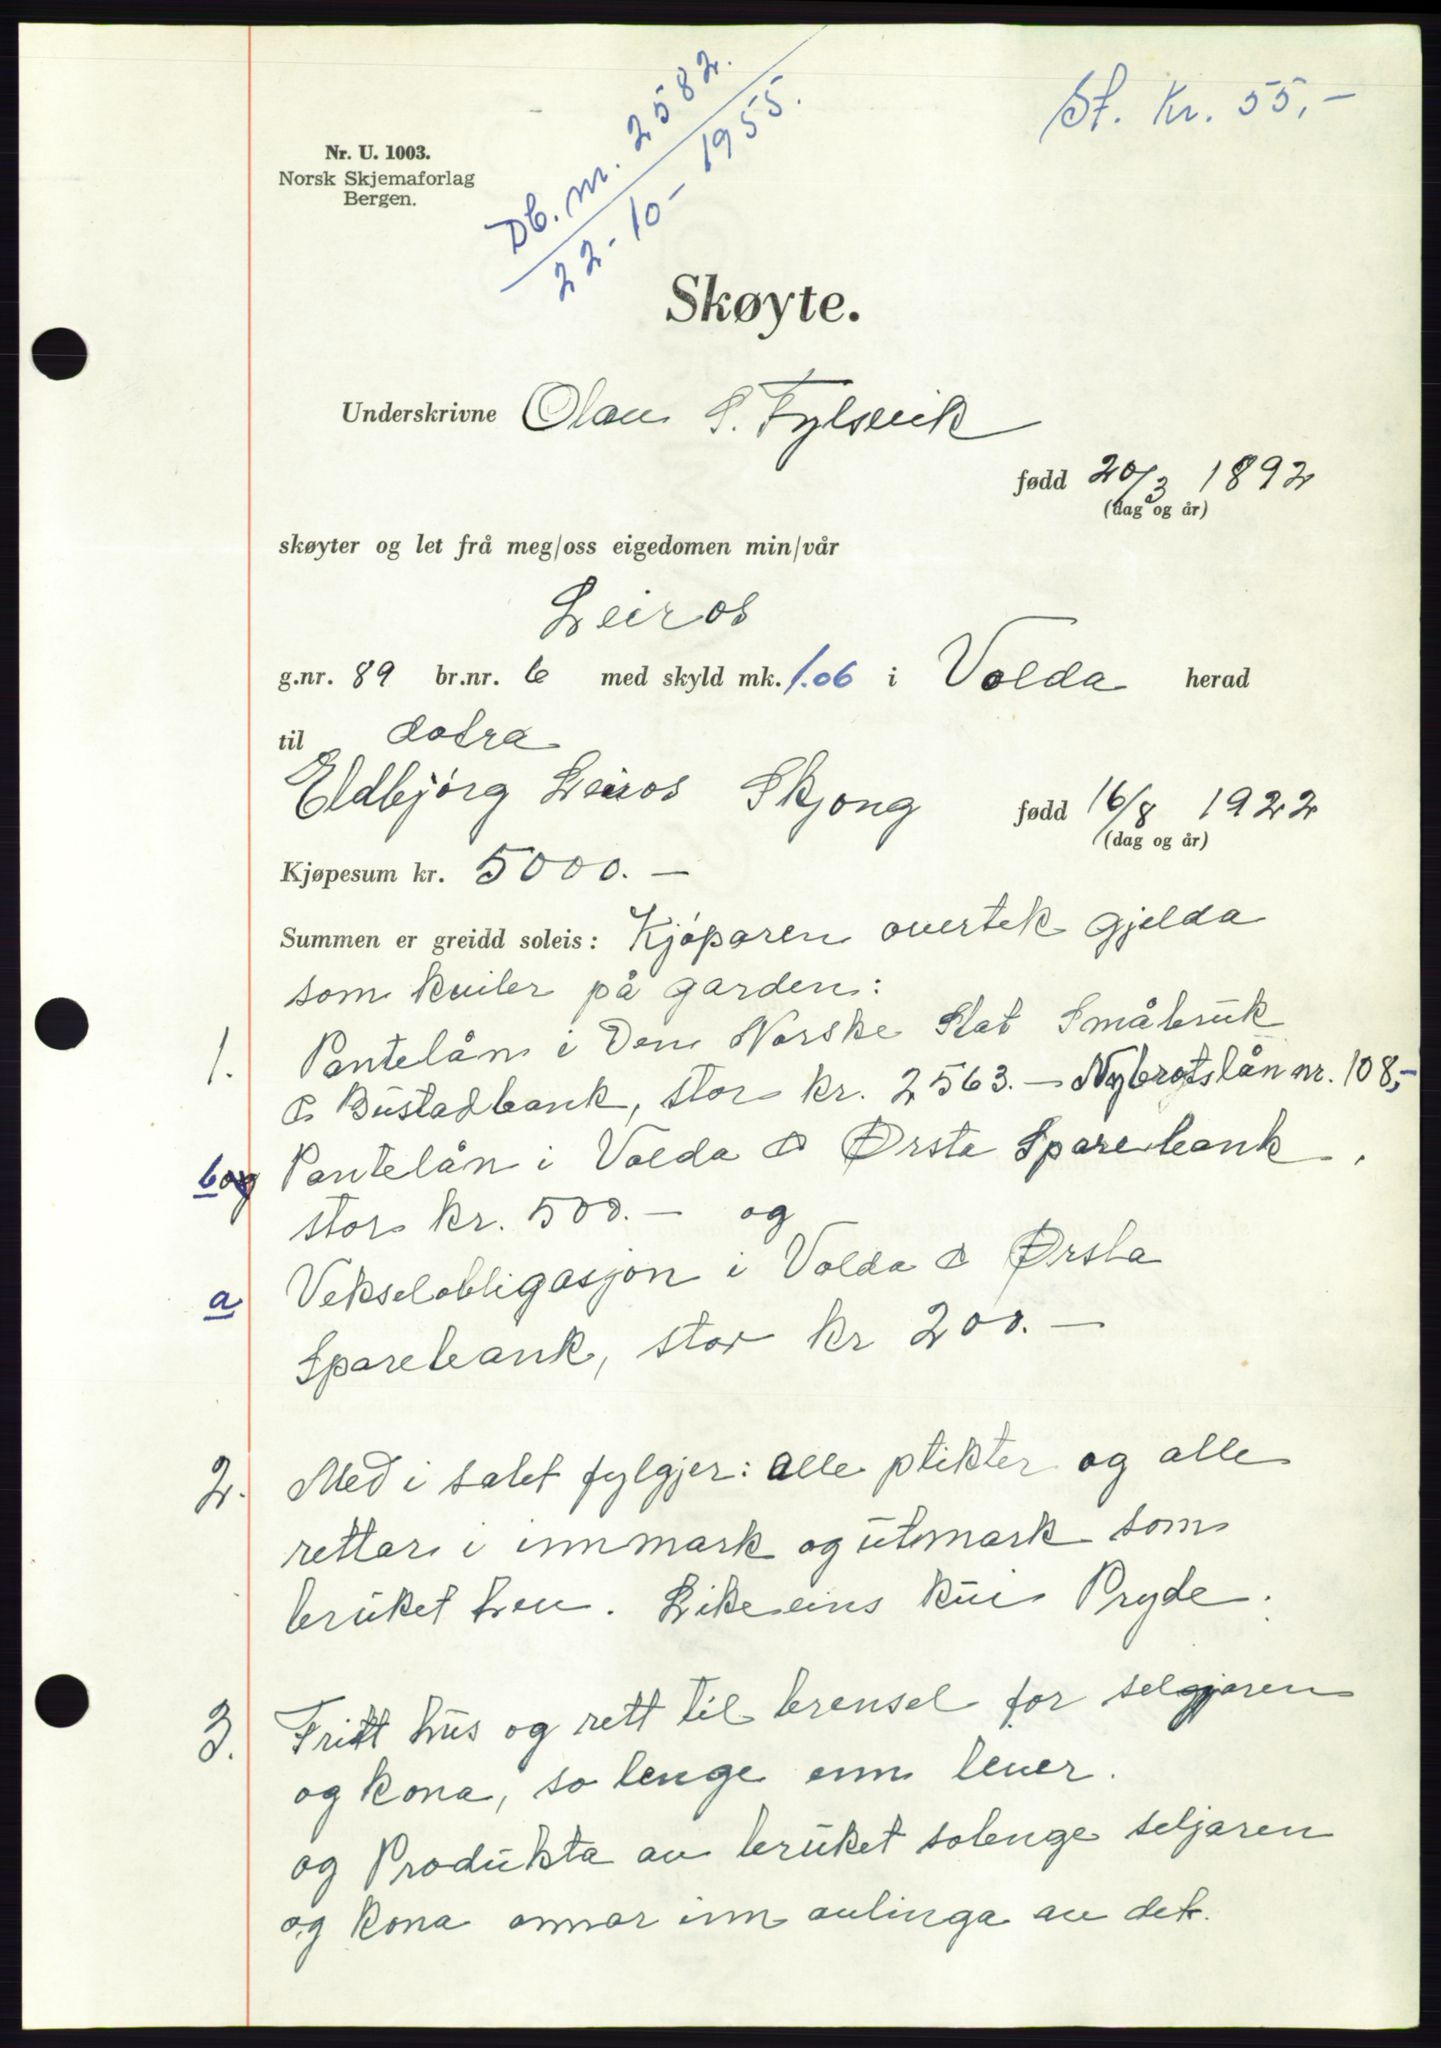 Db. nr. 2582.
22-10-1955.
St. Kr. 55,-
Nr. U. 1003.
Norsk Skjemaforlag
Bergen.
Skøyte.
Underskrivne Olav S. Fylsvik
fødd 20/3 1892
(dag og år)
skøyter og let frå meg/oss eigedomen min/vår
Leiros
g.nr. 89 br.nr. 6 med skyld mk. 1.06 i Volda herad
til dotra
Eldbjørg Leiros Skjong fødd 16/8 1922
(dag og år)
Kjøpesum kr. 5000.-
Summen er greidd soleis: Kjøparen overtek gjelda
som kviler på garden:
1. Pantelån i Den Norske Stat Småbruk
& Bustadbank, stor kr. 2563.- Nybrotslån nr. 108,-
b og Pantelån i Volda & Ørsta Sparebank,
stor kr. 500.- og
a Vekselobligasjon i Volda & Ørsta
Sparebank, stor kr 200.-
2. Med i salet fylgjer: alle plikter og alle
rettar i innmark og utmark som
bruket hev. Likeeins kui Pryde.
3. Fritt hus og rett til brensel for selgjaren
og kona, so lenge enn lever.
og Produkta av bruket solenge seljaren
og kona annar inn avlinga av det.